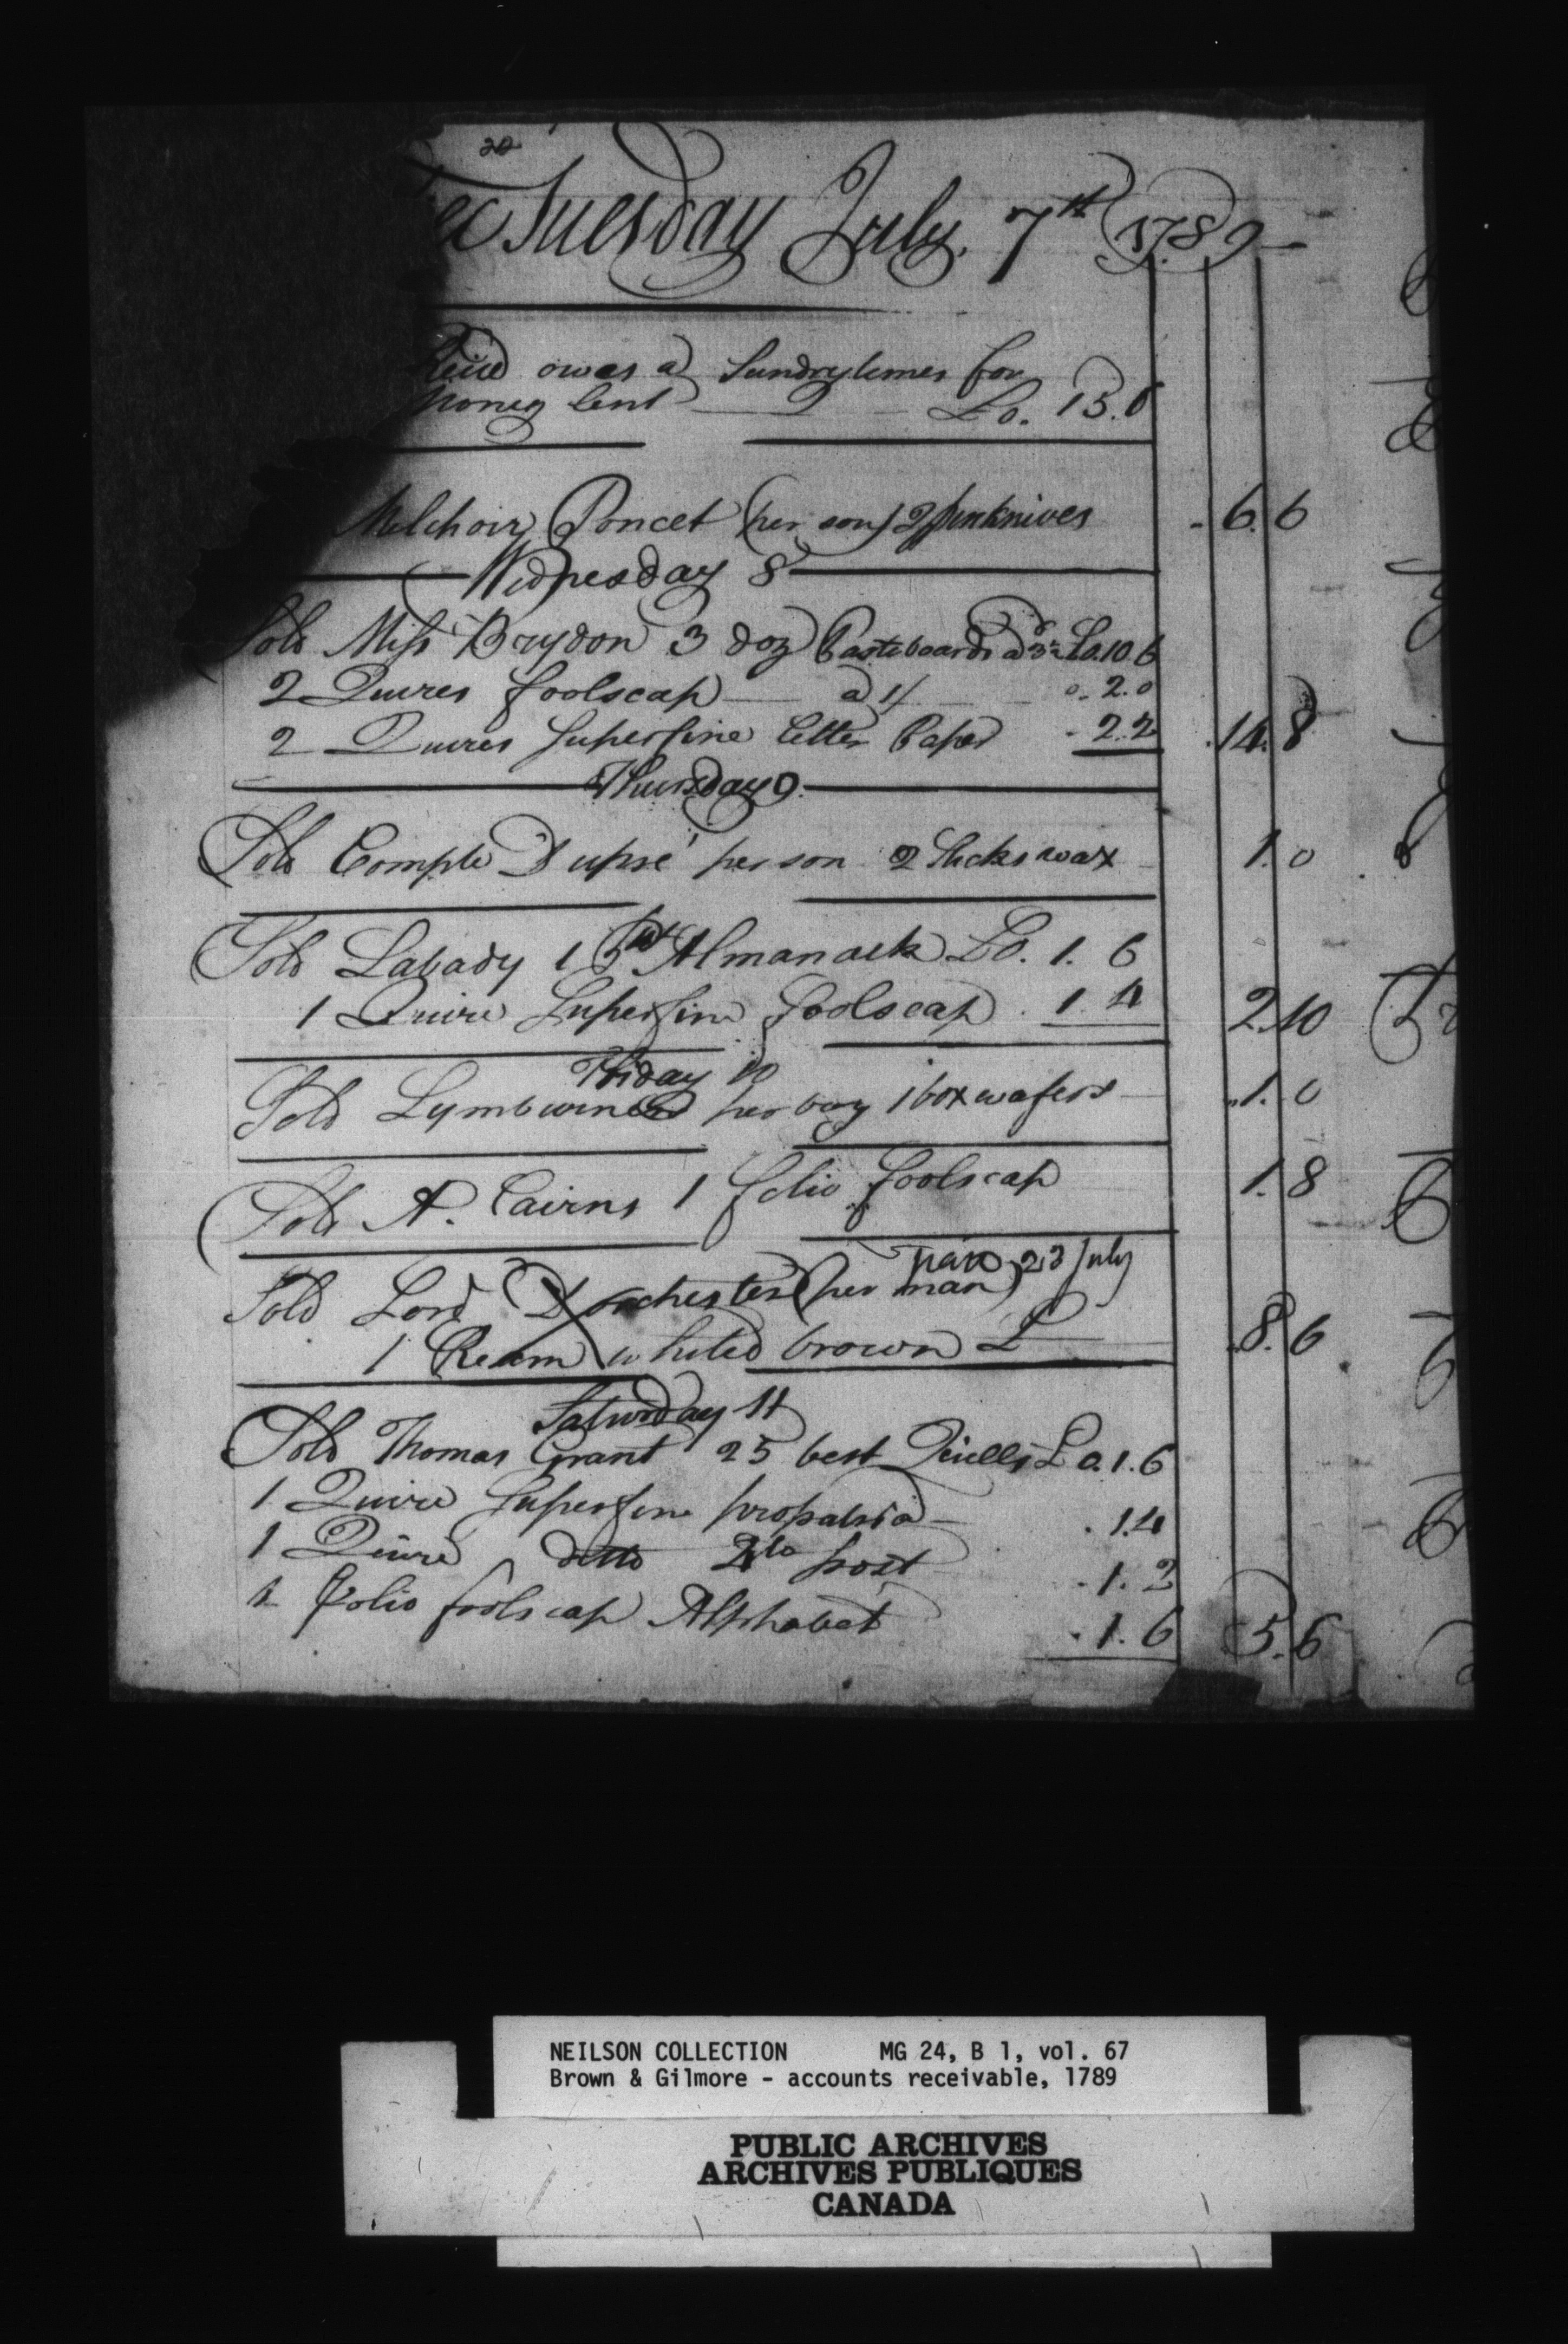 20
ec Tuesday July. 7th 1789
Reid owes a Sundry times for
money lent £0. 15. 6
Melchoir Poncet (per son) 2 penknives - 6. 6
Wednesday 8
Sold Miss Brydon 3 doz Pasteboards a 3/6 £0. 10 6
2 Quires foolscap a 1/ 0. 2. 0
2 Quires Superfine letter Paper - 2. 2 . 14. 8
Thursday 9.
Sold Compte Dupré per son 2 Sticks wax 1. 0
Sold Labady 1 Almanack £0. 1. 6
1 Quire Superfine foolscap . 1. 4 2. 10
Friday 10
Sold Lymburner per boy 1 box wafers 1. 0
Sold A. Cairns 1 folio foolscap 1. 8
paid 23 July
Sold Lord Dorchester (per man)
1 Ream whited brown £ .8. 6
Saturday 11
Sold Thomas Grant 25 best Quills £0. 1. 6
1 Quire Superfine propatria . 1. 4
1 Quire ditto 4to post . 1. 2
1 folio foolscap Alphabet . 1. 6 5. 6
NEILSON COLLECTION MG 24, B 1, vol. 67
Brown & Gilmore - accounts receivable, 1789
PUBLIC ARCHIVES
ARCHIVES PUBLIQUES
CANADA